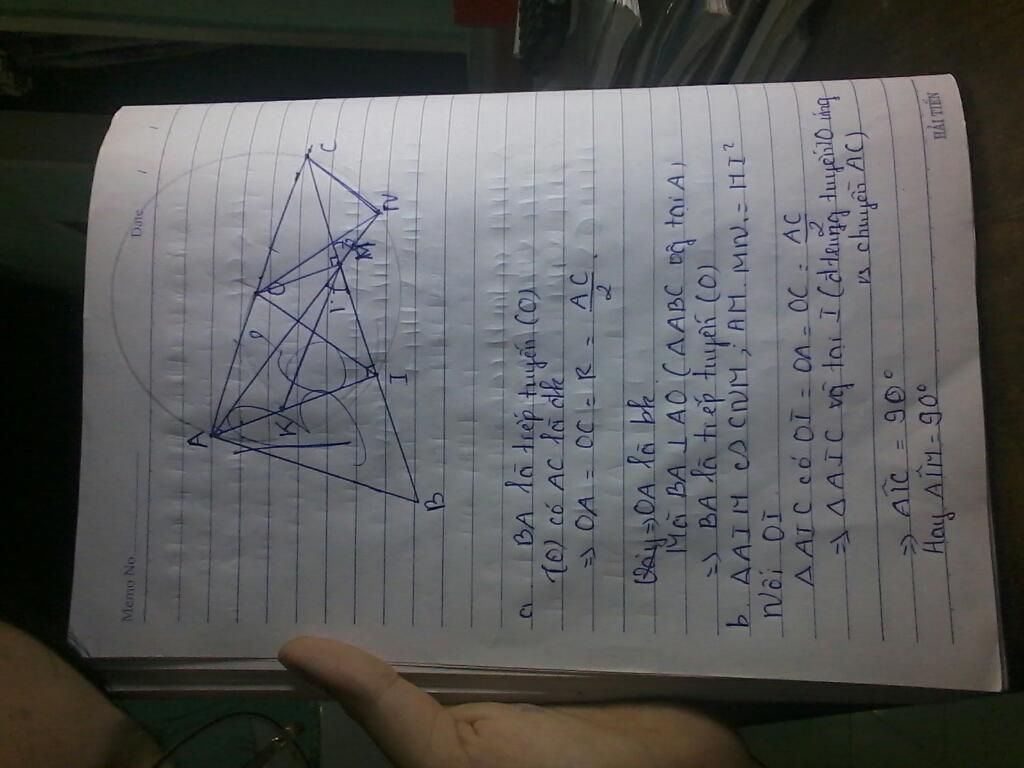 Memo No.
Date
A
O
C
K
I
M
N
B
I
a BA là tiếp tuyến (O)
(O) có AC là đk
=> OA = OC = R = AC/2
=> OA là bk
Mà BA ⊥ AO (△ABC vg tại A)
=> BA là tiếp tuyến (O)
b. △AIM ∽ CNM ; AM.MN = MI²
Nối OI
△AIC có OI = OA = OC = AC/2
=> △AIC vg tại I (đ trung tuyến IO ứng
vs chuyền AC)
=> AÎC = 90°
Hay AÎM = 90°
HẢI TIẾN